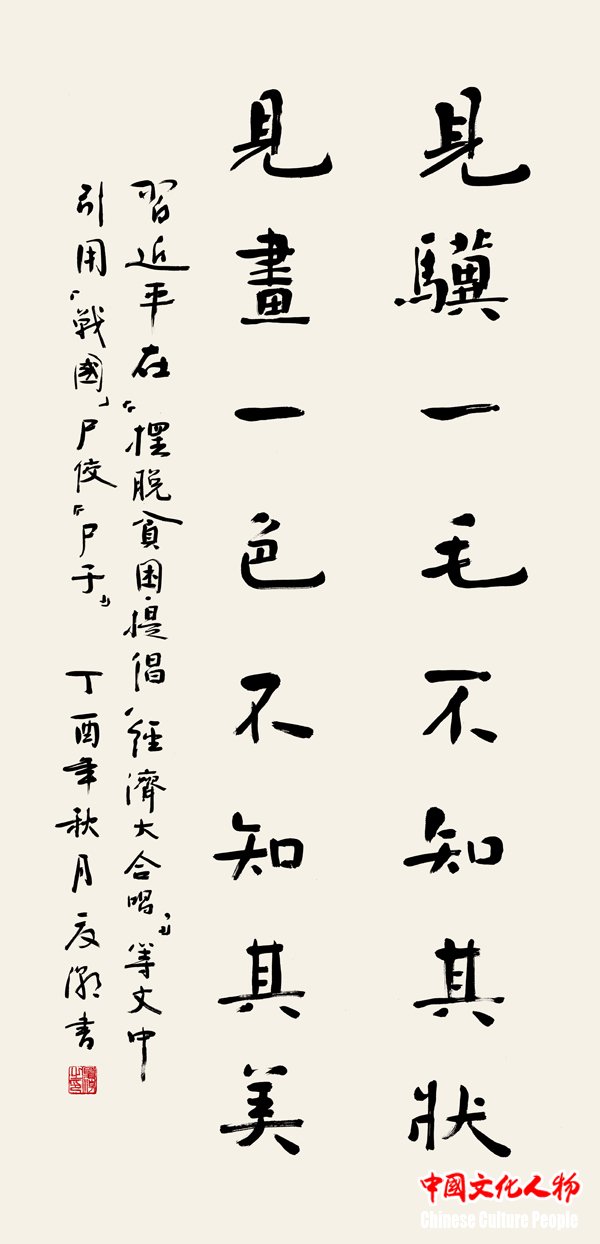 見驥一毛不知其狀
見畫一色不知其美
習近平在《擺脫貧困·提倡“經濟大合唱”》等文中
引用「戰國」尸佼《尸子》 丁酉年秋月 友灝书
中國文化人物
Chinese Culture People